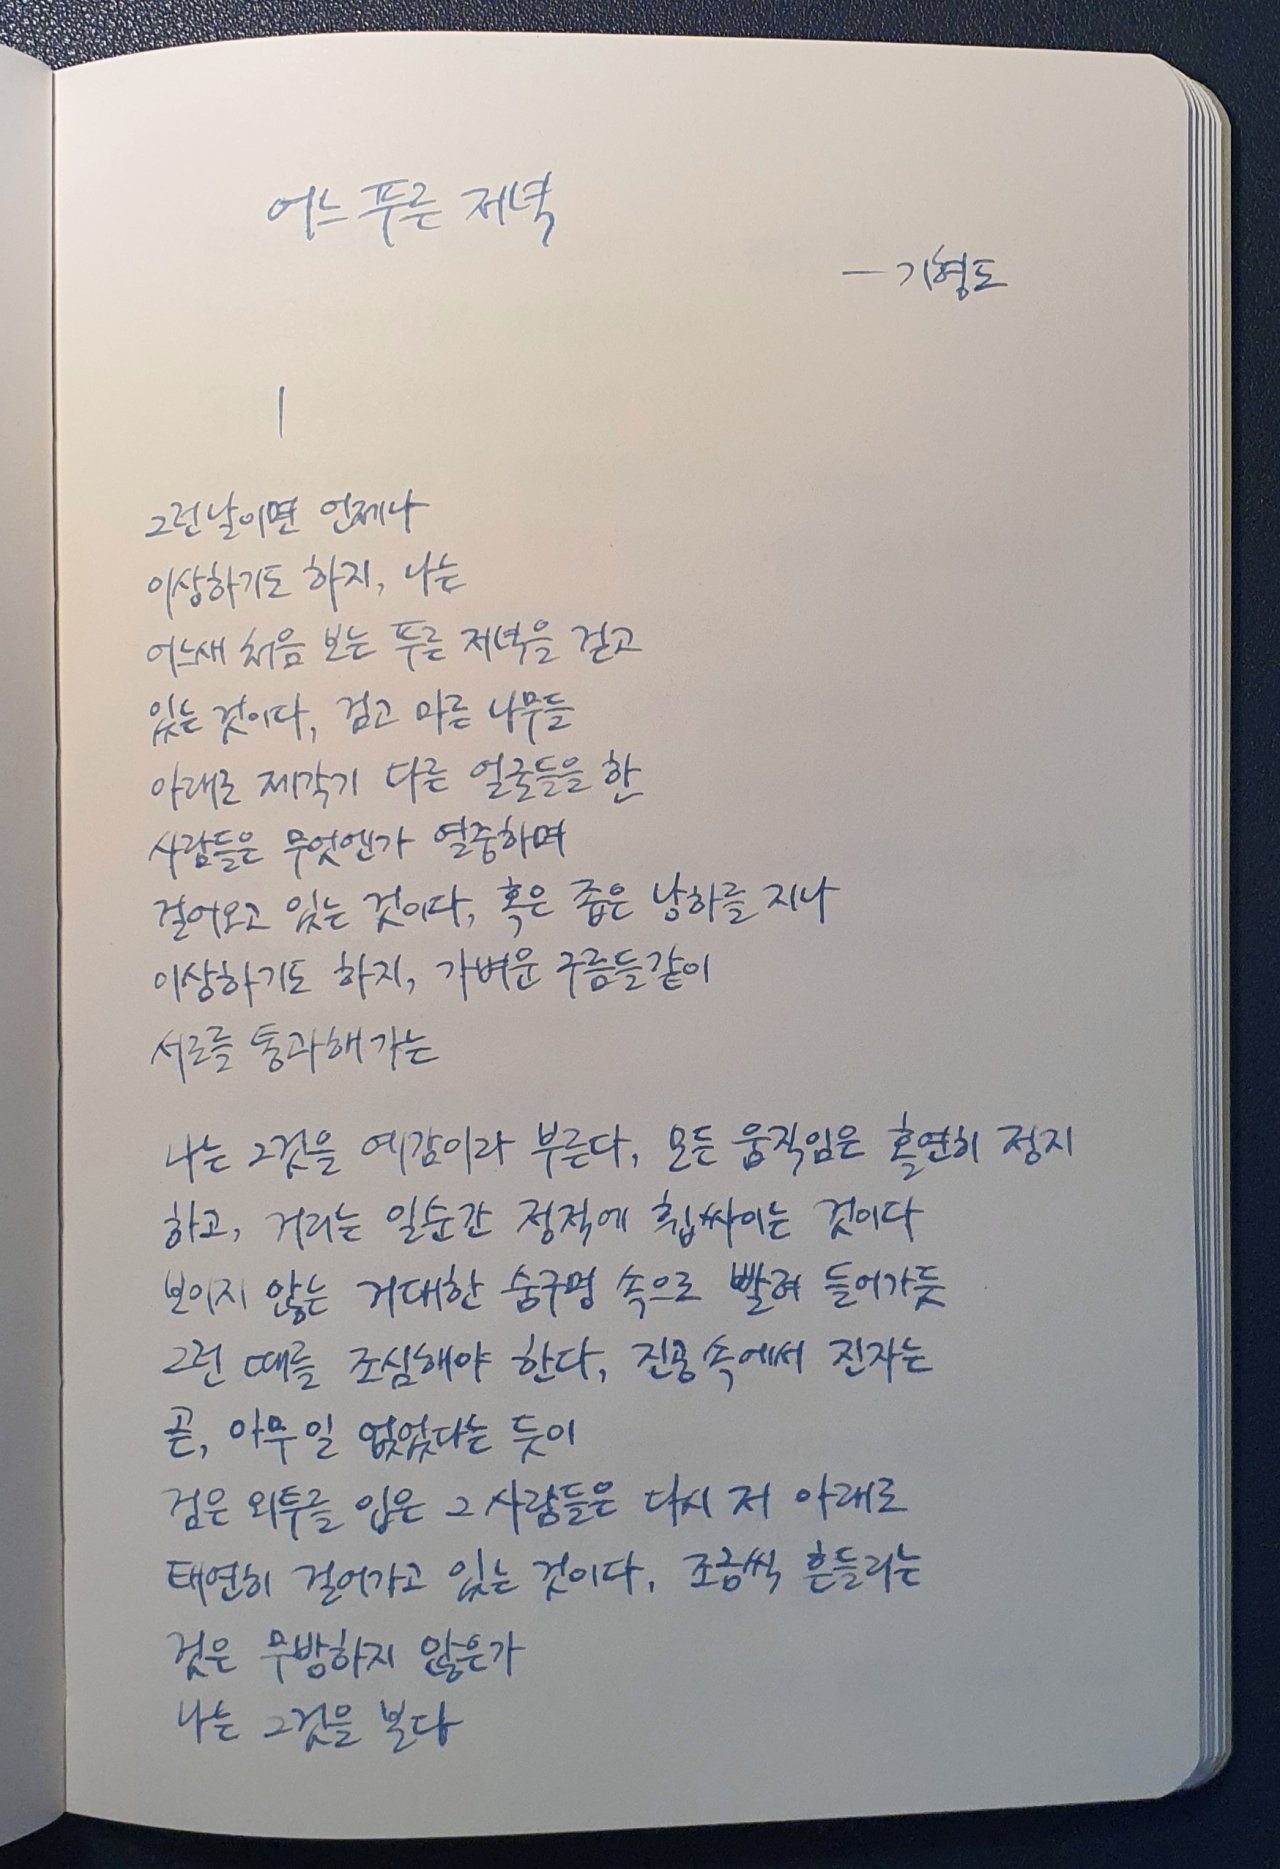 어느 푸른 저녁
— 기형도
1
그런 날이면 언제나
이상하기도 하지, 나는
어느새 처음 보는 푸른 저녁을 걷고
있는 것이다, 검고 마른 나무들
아래로 제각기 다른 얼굴들을 한
사람들은 무엇엔가 열중하며
걸어오고 있는 것이다, 혹은 좁은 낭하를 지나
이상하기도 하지, 가벼운 구름들같이
서로를 통과해가는
나는 그것을 예감이라 부른다, 모든 움직임은 홀연히 정지
하고, 거리는 일순간 정적에 휩싸이는 것이다
보이지 않는 거대한 숨구멍 속으로 빨려 들어가듯
그런 때를 조심해야 한다, 진공 속에서 진자는
곧, 아무 일 없었다는 듯이
검은 외투를 입은 그 사람들은 다시 저 아래로
태연히 걸어가고 있는 것이다, 조금씩 흔들리는
것은 무방하지 않은가
나는 그것을 본다